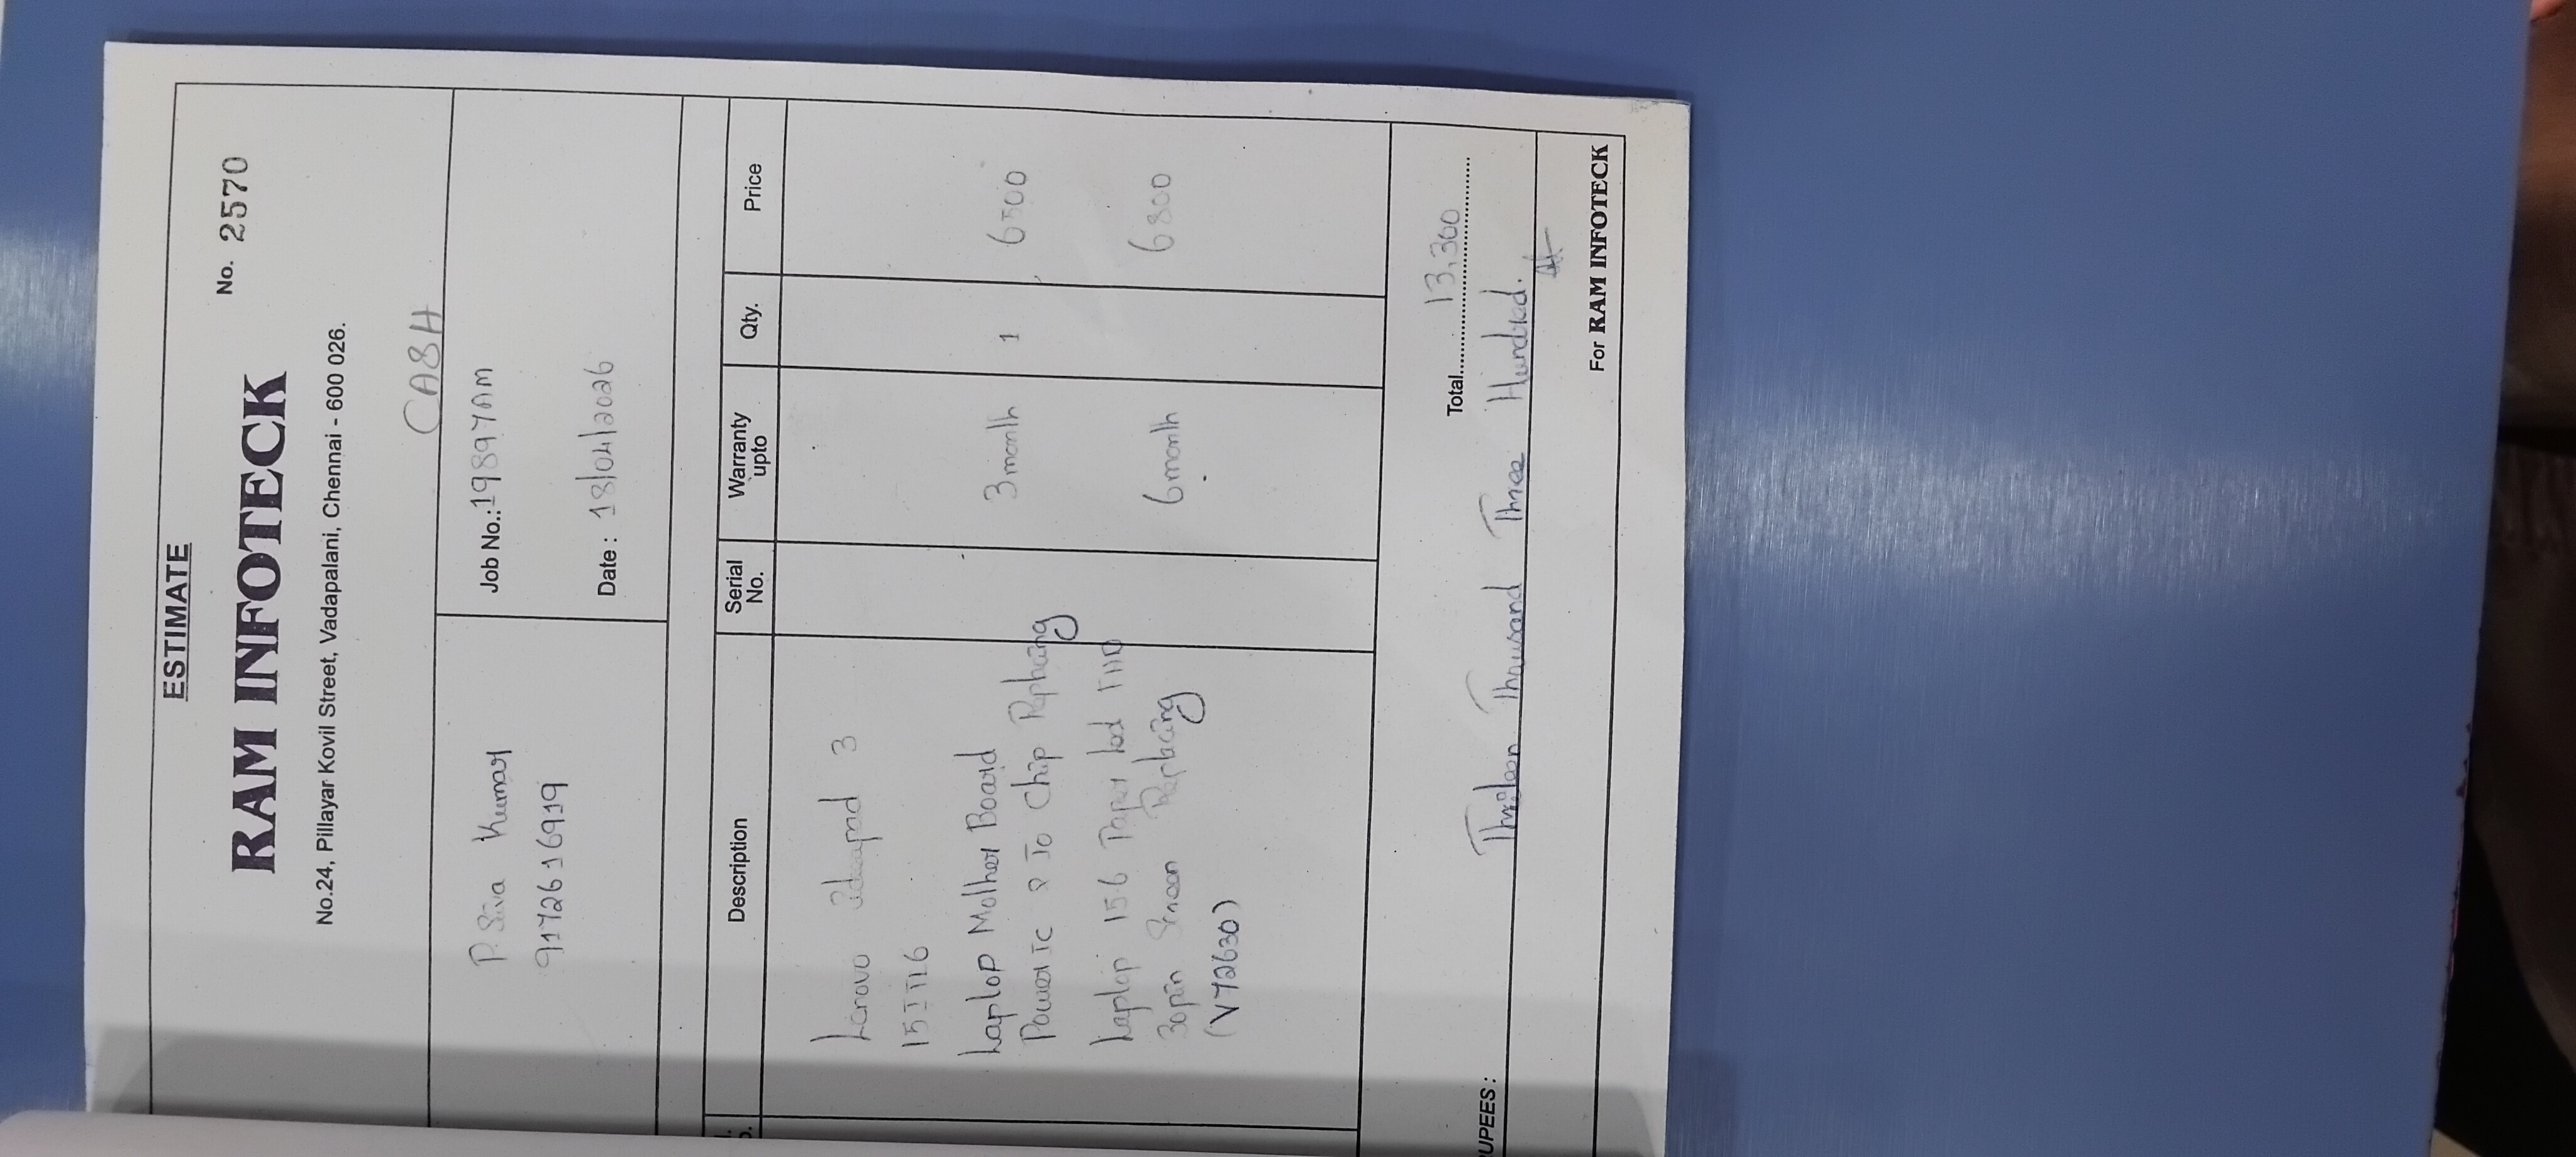 ESTIMATE
RAM INFOTECK
No. 2570
No.24, Pillayar Kovil Street, Vadapalani, Chennai - 600 026.
CASH
P. Siva Kumar
9172616919
Job No.: 19897AM
Date : 18/04/2026
Description Serial No. Warranty upto Qty. Price
Lenovo Ideapad 3
15ITL6
Laptop Mother Board
Power IC & Io Chip Replacing 3 month 1 6500
Laptop 15.6 Paper led FHD
30pin Screen Replacing 6 month 6800
(V72630)
Total 13,300
UPEES : Thirteen Thousand Three Hundred.
For RAM INFOTECK